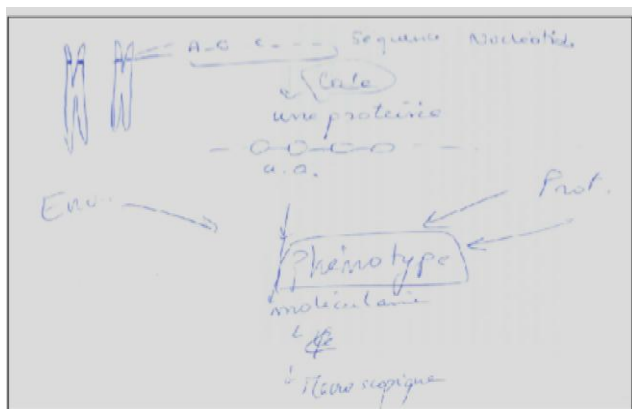 A-G C - - - Sequence Nucléotide
Code
une proteine
a.a.
Env.
Prot.
Phénotype
moléculaire
Macroscopique